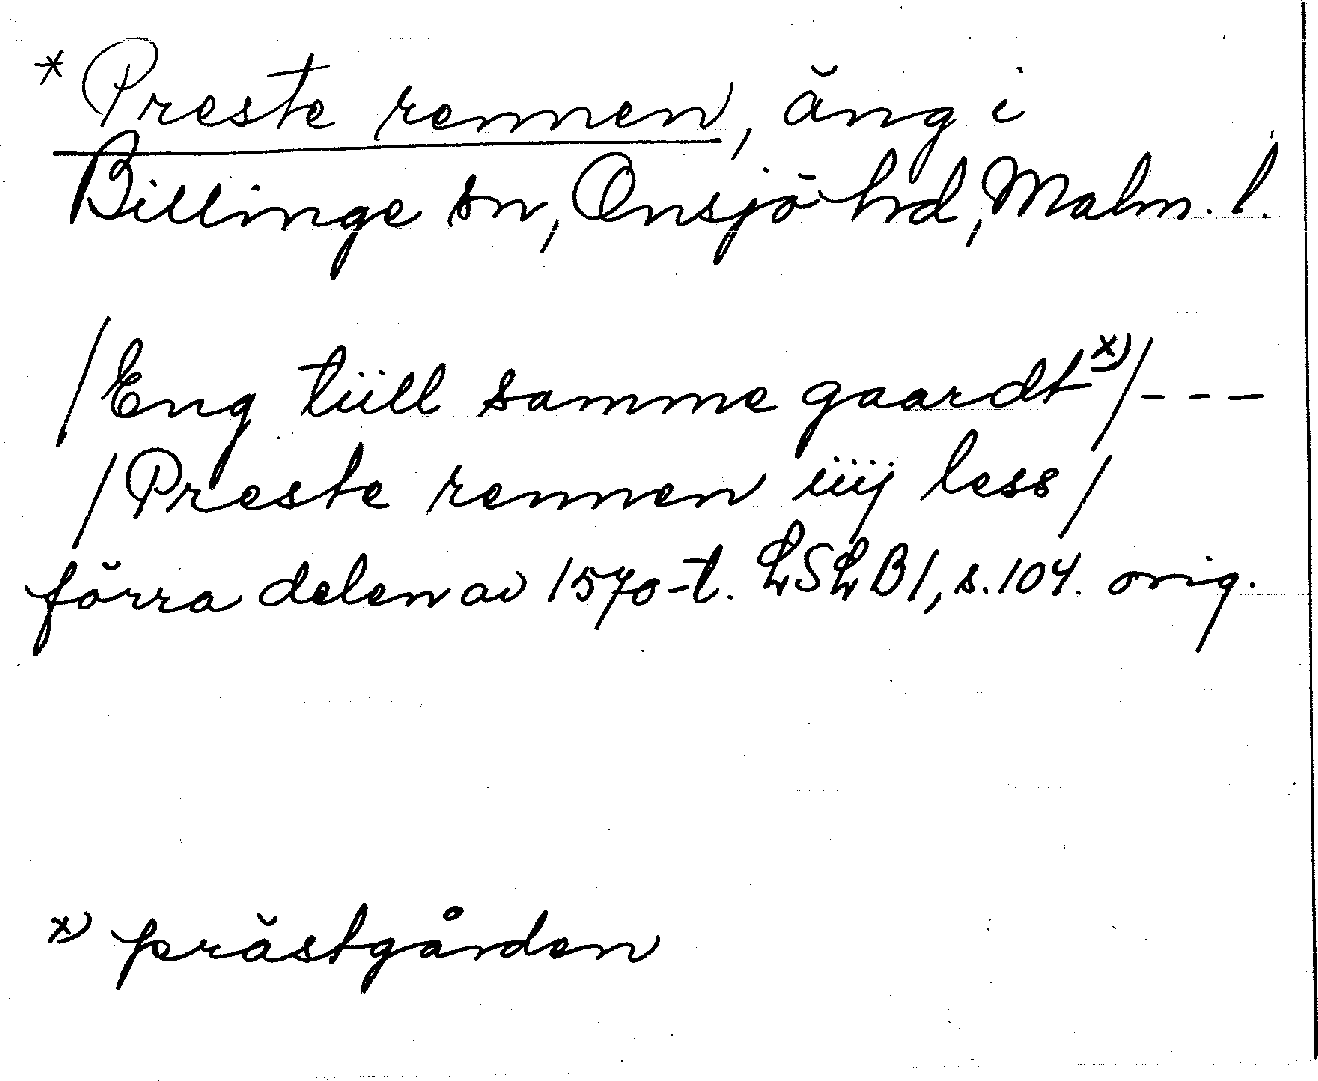 * Preste rennen, äng i
Billinge sn, Onsjö hd, Malm. l.
/Eng tiill samme gaardt x)/---
/Preste rennen iiij less/
förra delen av 1570-t. LSLB 1, s. 104. orig.
x) prästgården